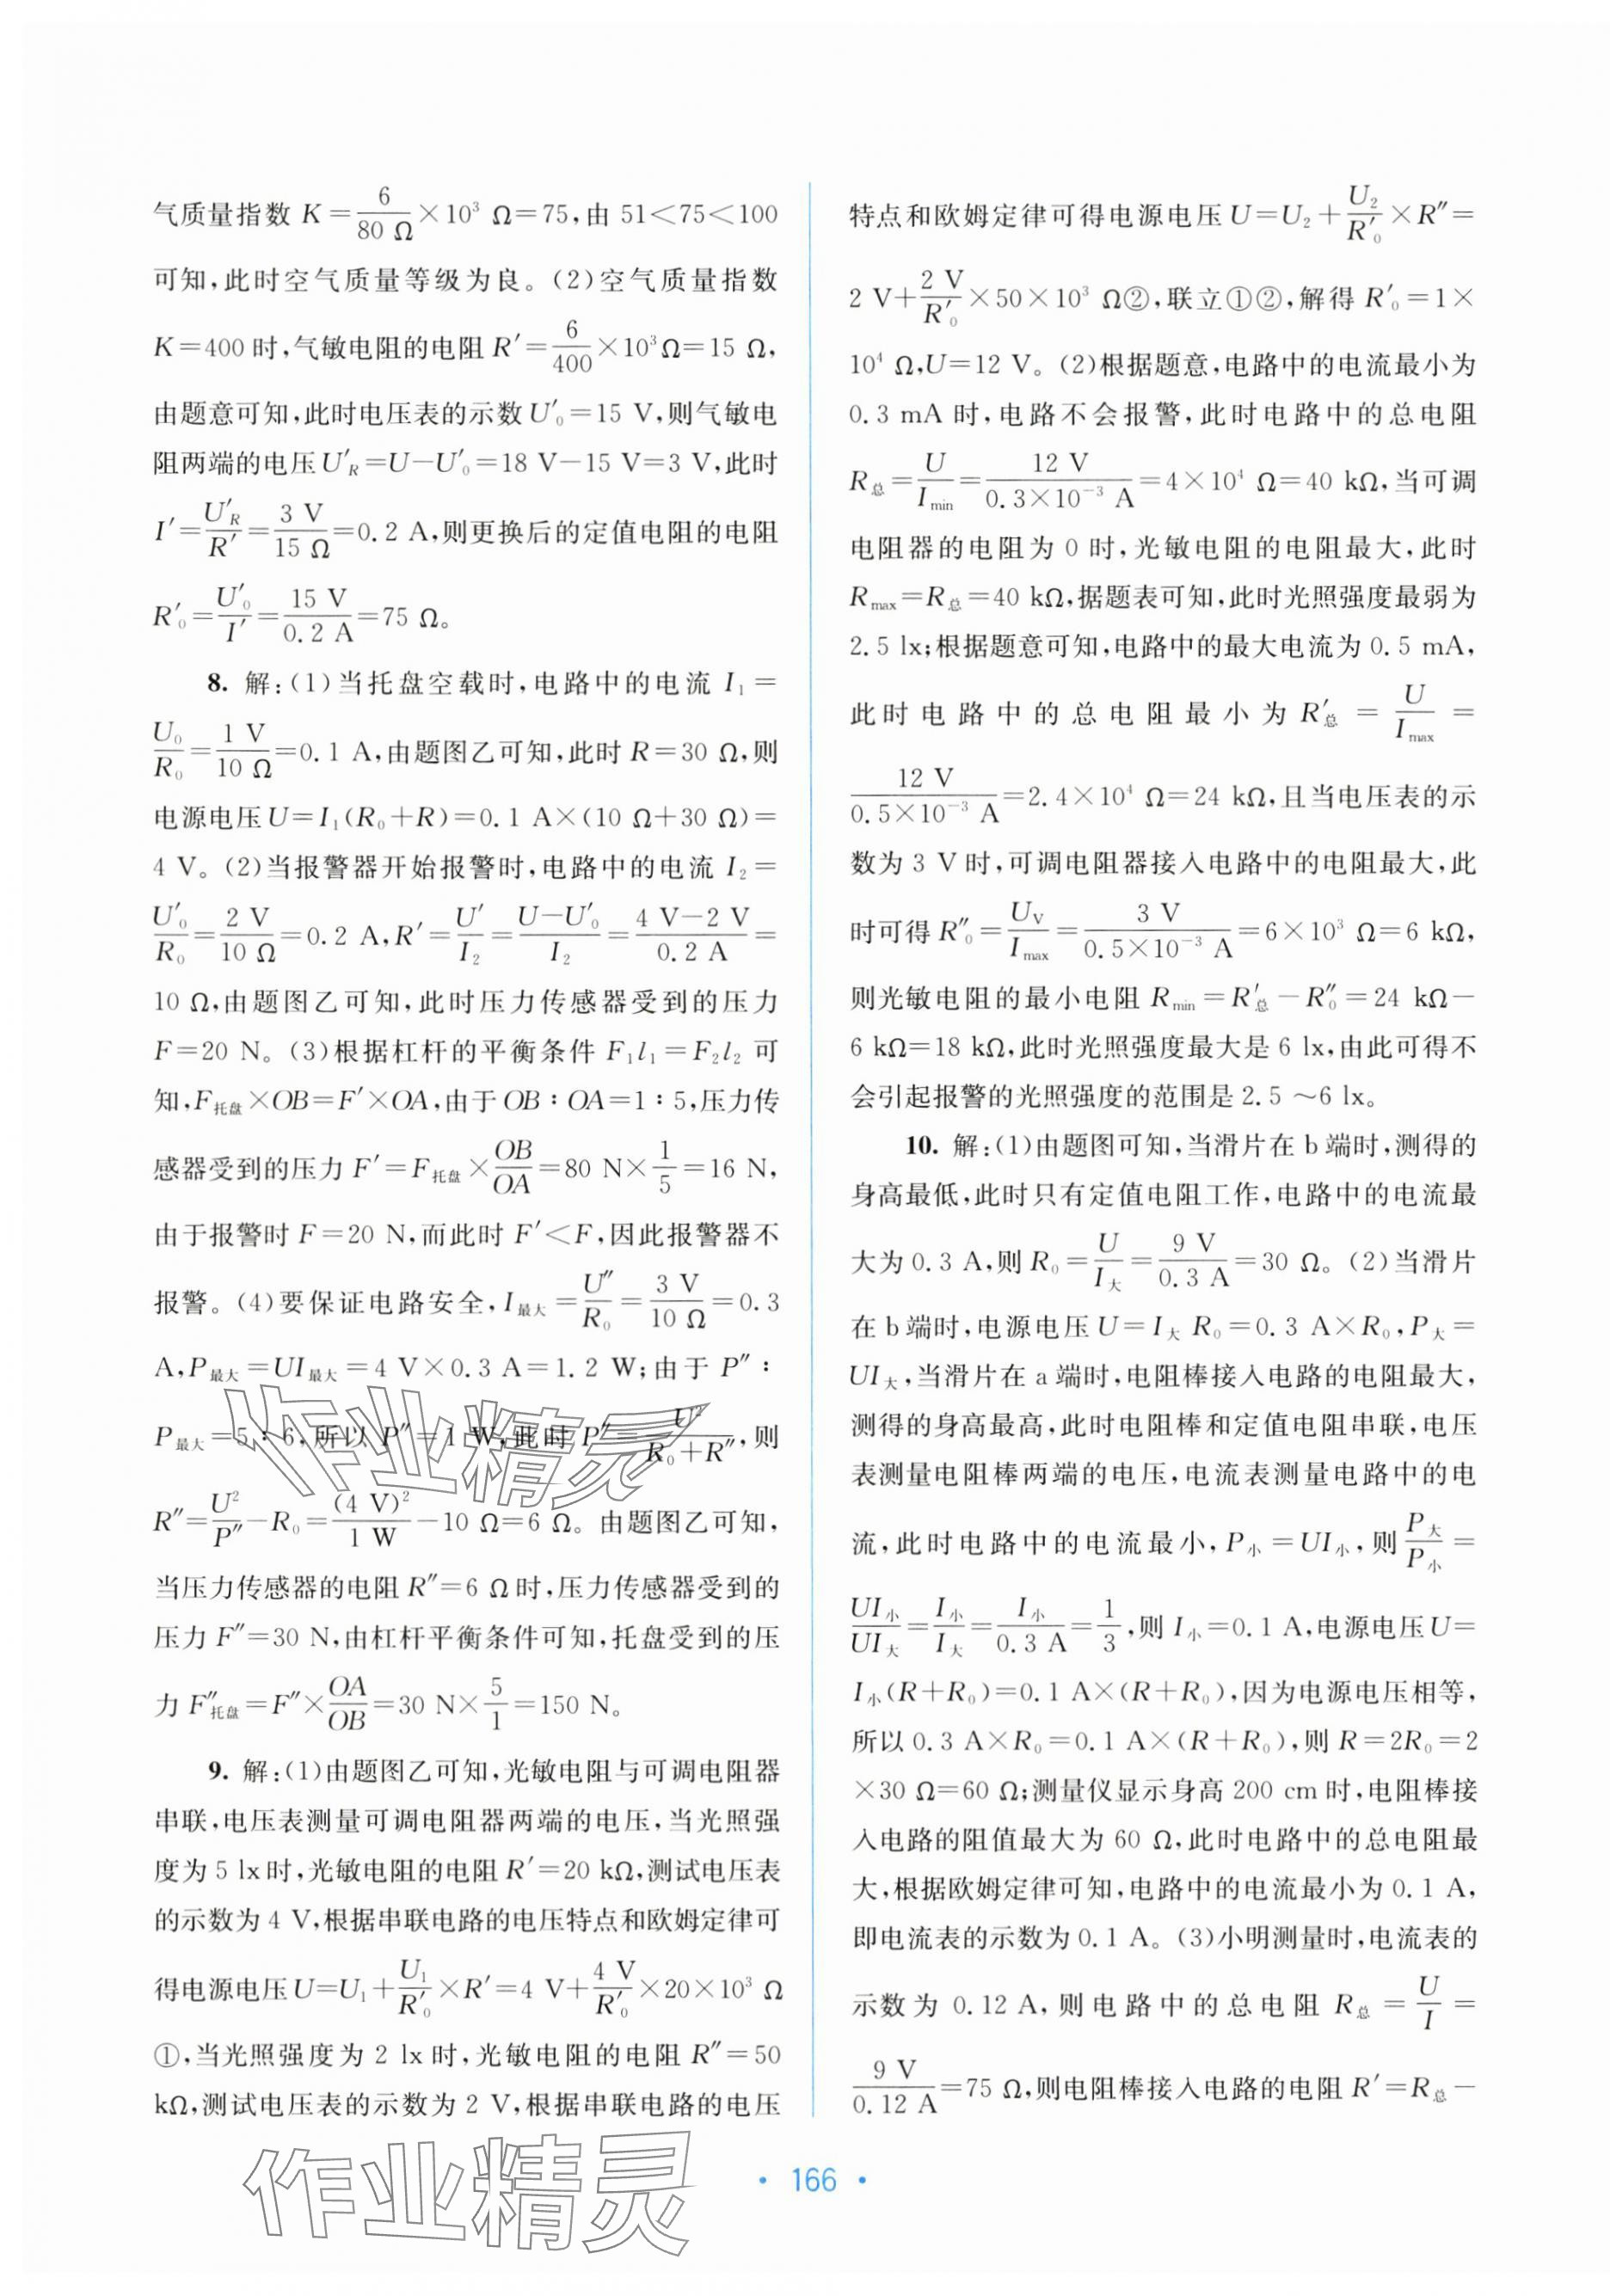 气质量指数 K=6/80 Ω×10³ Ω=75,由 51<75<100
可知,此时空气质量等级为良。(2)空气质量指数
K=400 时,气敏电阻的电阻 R′=6/400×10³Ω=15 Ω,
由题意可知,此时电压表的示数 U′₀=15 V,则气敏电
阻两端的电压 U′R=U−U′₀=18 V−15 V=3 V,此时
I′=U′R/R′=3 V/15 Ω=0.2 A,则更换后的定值电阻的电阻
R′₀=U′₀/I′=15 V/0.2 A=75 Ω。
8. 解:(1)当托盘空载时,电路中的电流 I₁=
U₀/R₀=1 V/10 Ω=0.1 A,由题图乙可知,此时 R=30 Ω,则
电源电压 U=I₁(R₀+R)=0.1 A×(10 Ω+30 Ω)=
4 V。(2)当报警器开始报警时,电路中的电流 I₂=
U′₀/R₀=2 V/10 Ω=0.2 A,R′=U′/I₂=(U−U′₀)/I₂=(4 V−2 V)/0.2 A=
10 Ω,由题图乙可知,此时压力传感器受到的压力
F=20 N。(3)根据杠杆的平衡条件 F₁l₁=F₂l₂ 可
知,F托盘×OB=F′×OA,由于 OB∶OA=1∶5,压力传
感器受到的压力 F′=F托盘×OB/OA=80 N×1/5=16 N,
由于报警时 F=20 N,而此时 F′<F,因此报警器不
报警。(4)要保证电路安全,I最大=U″/R₀=3 V/10 Ω=0.3
A,P最大=UI最大=4 V×0.3 A=1.2 W;由于 P″∶
P最大=5∶6,所以 P″=1 W,此时 P″=U²/(R₀+R″),则
R″=U²/P″−R₀=(4 V)²/1 W−10 Ω=6 Ω。由题图乙可知,
当压力传感器的电阻 R″=6 Ω时,压力传感器受到的
压力 F″=30 N,由杠杆平衡条件可知,托盘受到的压
力 F″托盘=F″×OA/OB=30 N×5/1=150 N。
9. 解:(1)由题图乙可知,光敏电阻与可调电阻器
串联,电压表测量可调电阻器两端的电压,当光照强
度为 5 lx时,光敏电阻的电阻 R′=20 kΩ,测试电压表
的示数为 4 V,根据串联电路的电压特点和欧姆定律可
得电源电压 U=U₁+U₁/R′₀×R′=4 V+4 V/R′₀×20×10³ Ω
①,当光照强度为 2 lx时,光敏电阻的电阻 R″=50
kΩ,测试电压表的示数为 2 V,根据串联电路的电压
特点和欧姆定律可得电源电压 U=U₂+U₂/R′₀×R″=
2 V+2 V/R′₀×50×10³ Ω②,联立①②,解得 R′₀=1×
10⁴ Ω,U=12 V。(2)根据题意,电路中的电流最小为
0.3 mA 时,电路不会报警,此时电路中的总电阻
R总=U/Imin=12 V/(0.3×10⁻³ A)=4×10⁴ Ω=40 kΩ,当可调
电阻器的电阻为 0 时,光敏电阻的电阻最大,此时
Rmax=R总=40 kΩ,据题表可知,此时光照强度最弱为
2.5 lx;根据题意可知,电路中的最大电流为 0.5 mA,
此时电路中的总电阻最小为 R′总=U/Imax=
12 V/(0.5×10⁻³ A)=2.4×10⁴ Ω=24 kΩ,且当电压表的示
数为 3 V时,可调电阻器接入电路中的电阻最大,此
时可得 R″₀=UV/Imax=3 V/(0.5×10⁻³ A)=6×10³ Ω=6 kΩ,
则光敏电阻的最小电阻 Rmin=R′总−R″₀=24 kΩ−
6 kΩ=18 kΩ,此时光照强度最大是 6 lx,由此可得不
会引起报警的光照强度的范围是 2.5 ~6 lx。
10. 解:(1)由题图可知,当滑片在 b 端时,测得的
身高最低,此时只有定值电阻工作,电路中的电流最
大为 0.3 A,则 R₀=U/I大=9 V/0.3 A=30 Ω。(2)当滑片
在 b 端时,电源电压 U=I大 R₀=0.3 A×R₀,P大=
UI大,当滑片在 a 端时,电阻棒接入电路的电阻最大,
测得的身高最高,此时电阻棒和定值电阻串联,电压
表测量电阻棒两端的电压,电流表测量电路中的电
流,此时电路中的电流最小,P小=UI小,则P大/P小=
UI小/UI大=I小/I大=I小/0.3 A=1/3,则 I小=0.1 A,电源电压 U=
I小(R+R₀)=0.1 A×(R+R₀),因为电源电压相等,
所以 0.3 A×R₀=0.1 A×(R+R₀),则 R=2R₀=2
×30 Ω=60 Ω;测量仪显示身高 200 cm 时,电阻棒接
入电路的阻值最大为 60 Ω,此时电路中的总电阻最
大,根据欧姆定律可知,电路中的电流最小为 0.1 A,
即电流表的示数为 0.1 A。(3)小明测量时,电流表的
示数为 0.12 A,则电路中的总电阻 R总=U/I=
9 V/0.12 A=75 Ω,则电阻棒接入电路的电阻 R′=R总−
· 166 ·
作业精灵
作业精灵